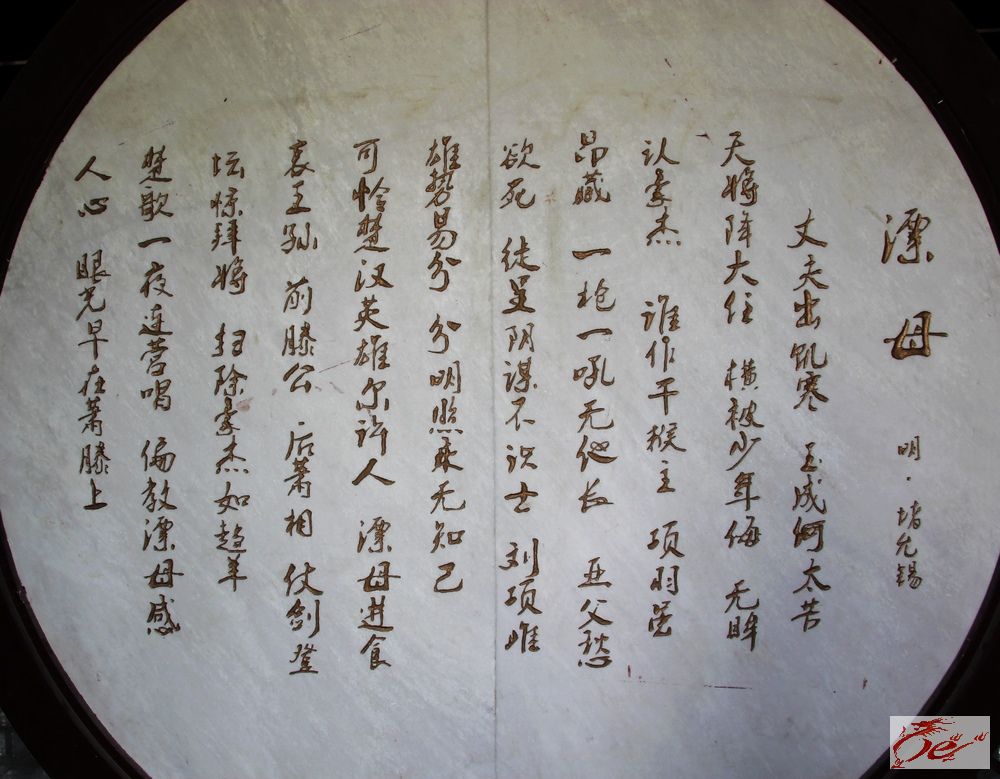 漂母
明·堵允锡
丈夫出饥寒 玉成何太苦
天将降大任 横被少年侮 无眸
认豪杰 谁作干猴主 项羽
昂藏 一枪一吼无他长 亚父愁
欲死 徒呈阴谋不识士 刘项雌
雄势易分 分明照来无知己
可怜楚汉英雄尔许人 漂母进食
哀王孙 前滕公 后萧相 仗剑登
坛惊拜将 扫除豪杰如
楚歌一夜连营唱 偏教漂母感
人心 眼光早在萧滕上